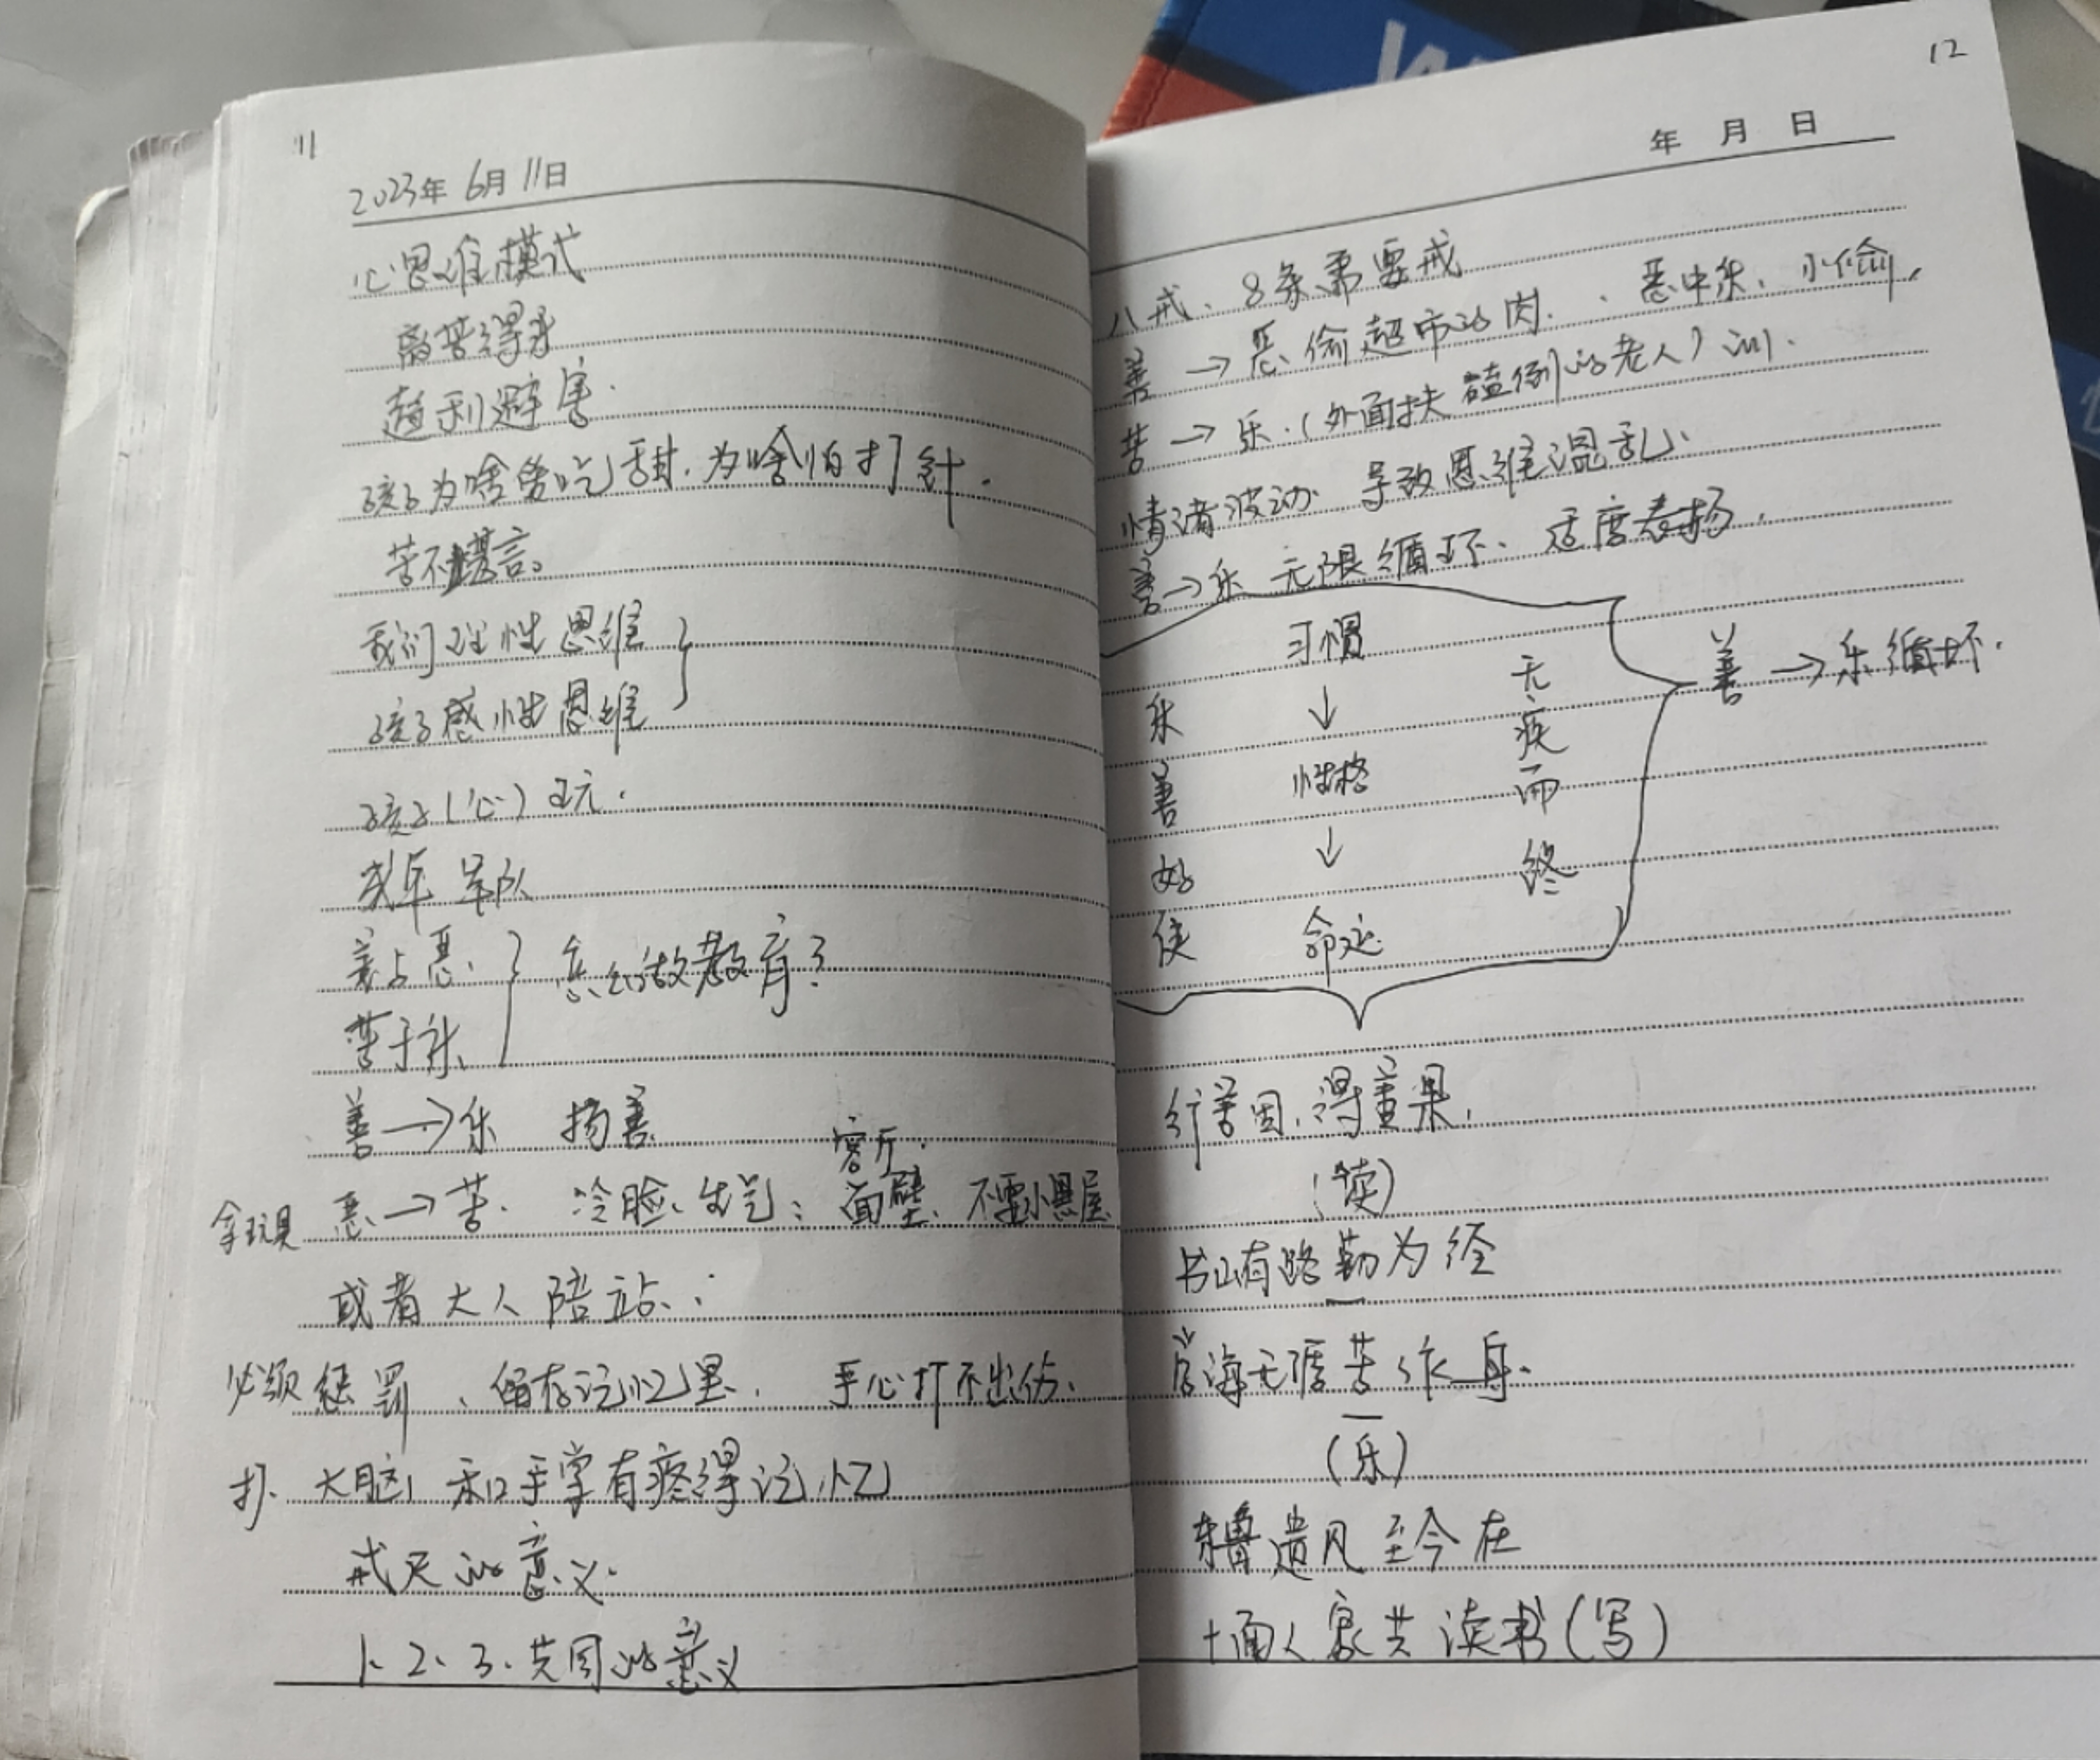 11
2023年 6月 11日
心思维模式
离苦得乐
趋利避害.
孩子为啥爱吃甜.为啥怕打针.
苦不堪言。
我们理性思维
孩子感性思维
孩子(心)玩.
成年 军队
善与恶、
苦于乐、
怎么做教育?
善→乐 扬善
客厅.
拿玩具 恶→苦. 冷脸、生气; 面壁、不要小黑屋
或者大人陪站;
必须惩罚、留存记忆里. 手心打不出伤.
打. 大脑 和手掌有疼得记忆
戒尺的意义.
1、2、3、共同的意义
12
年 月 日
八戒、8条需要戒
善→恶 偷超市的肉. 、恶中乐、小偷.
苦→乐.(外面扶磕倒的老人)训.
情绪波动 导致思维混乱、
善→乐 无限循环、适度表扬.
习惯
↓
性格
↓
命运
乐善好使
无疾而终
善→乐循环.
行善因,得善果,
(读)
书山有路勤为径
学海无涯苦作舟.
(乐)
东鲁遗风至今在
十面人家共读书(写)